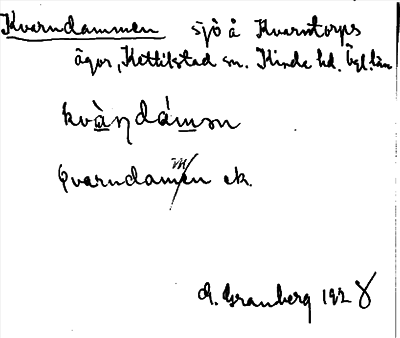 Kvarndammen sjö å Kvarntorps
ägor, Kettilstad sn. Kinda hd. Ögl. län
kvàɳdámən
Qvarndamen ek.
m
G. Granberg 1928